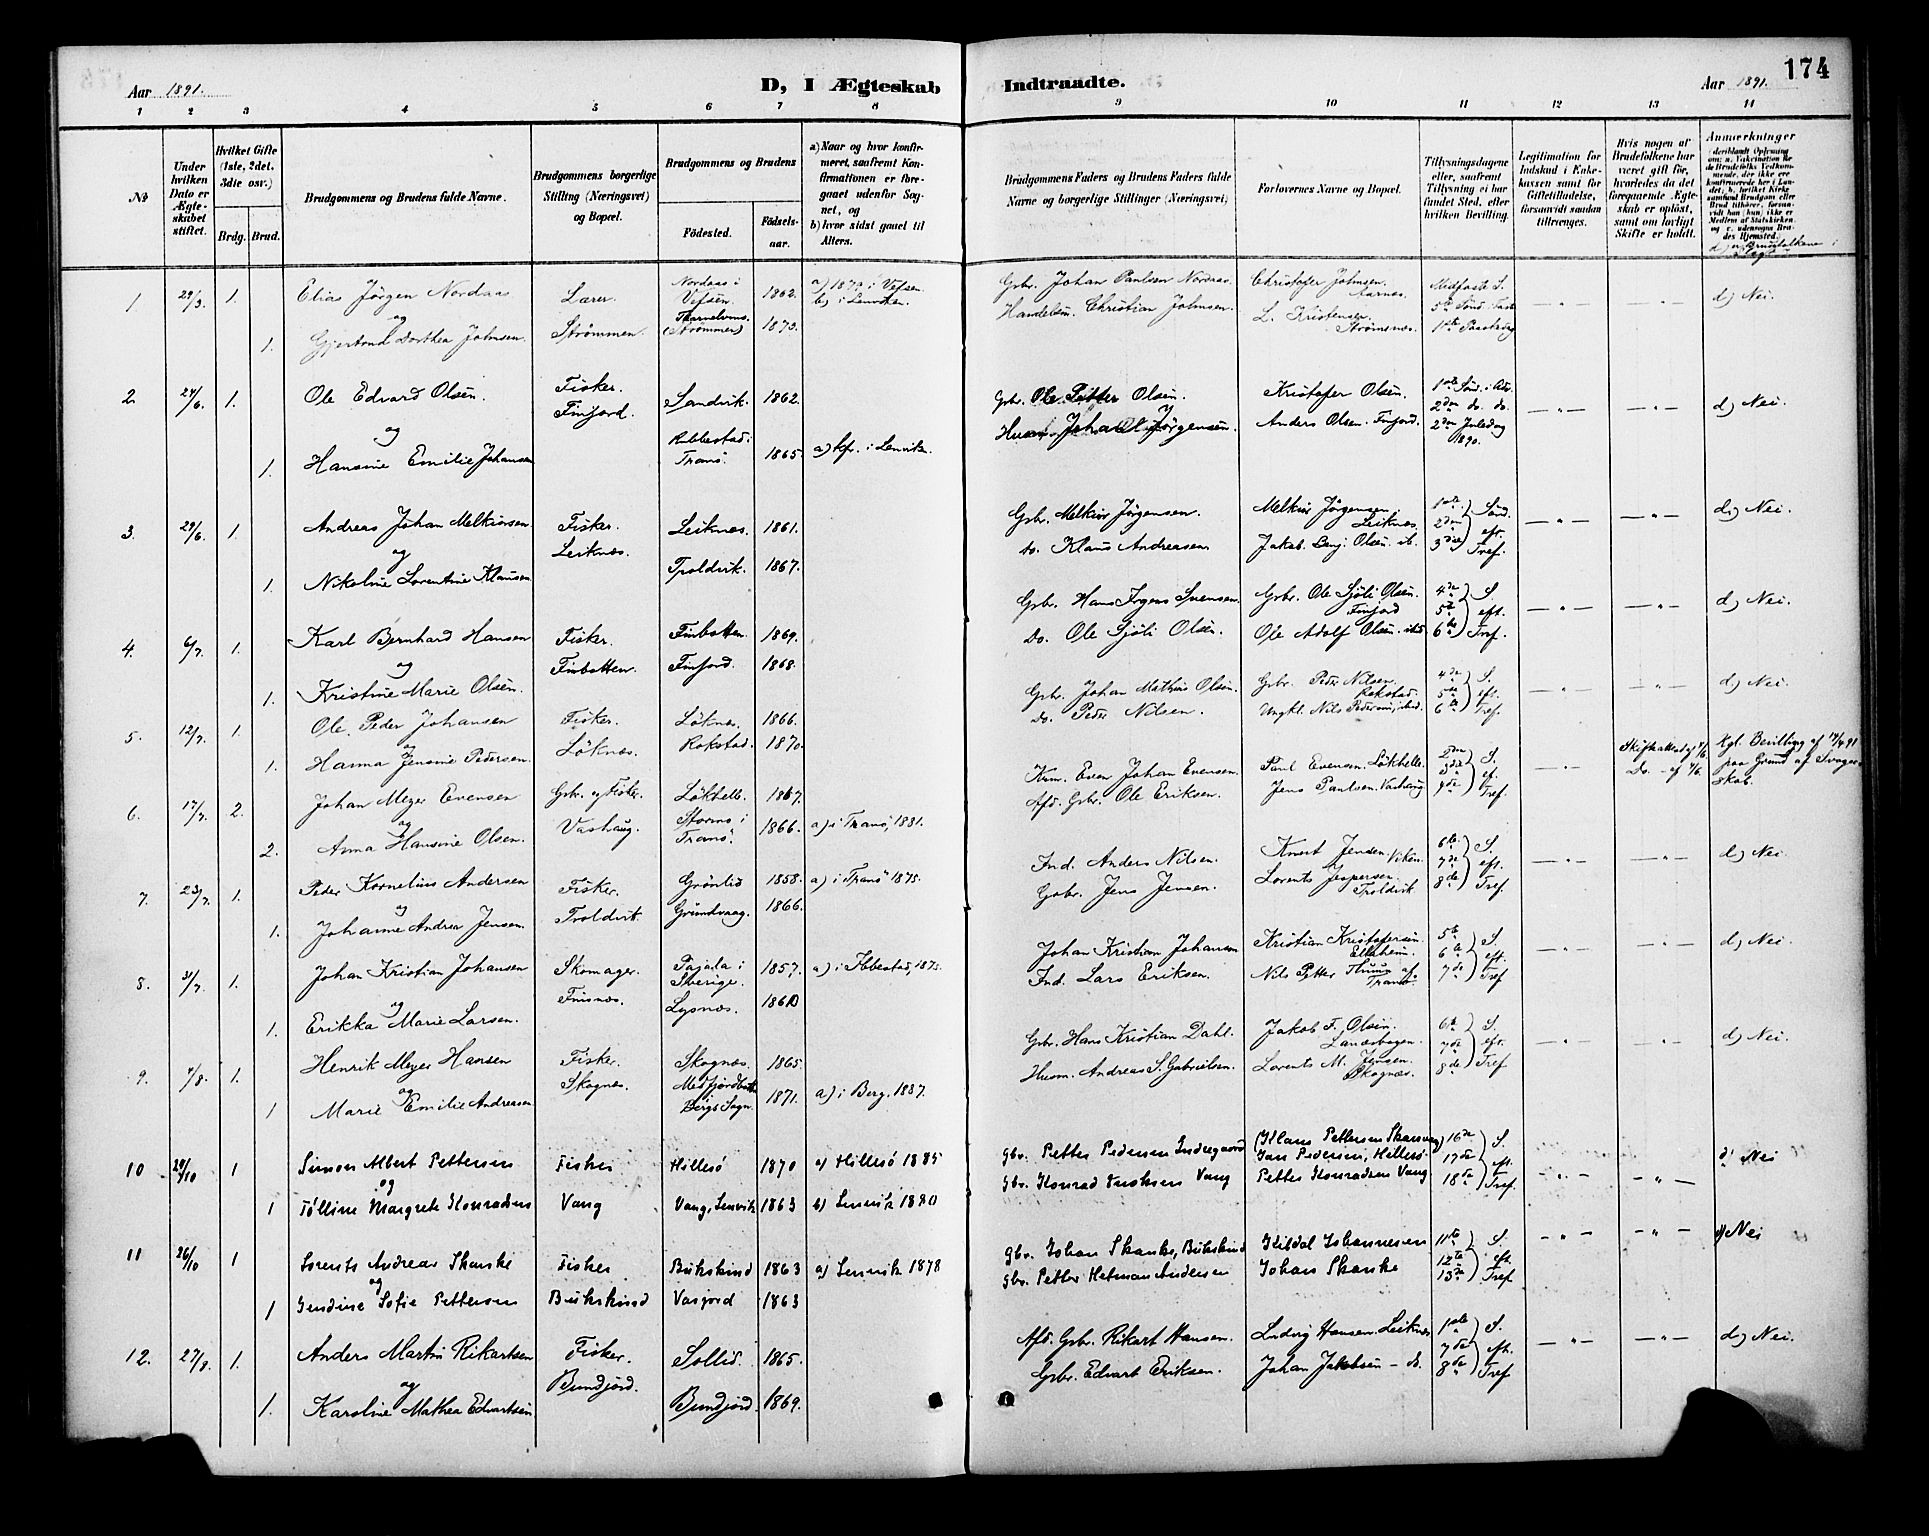 174
Aar 1891. D, I Ægteskab Indtraadte. Aar 1891.
1 2 3 4 5 6 7 8 9 10 11 12 13 14
No
Under hvilken Dato er Ægteskabet stiftet.
Hvilket Gifte (1ste, 2det, 3die osv.)
Brdg. Brud.
Brudgommens og Brudens fulde Navne.
Brudgommens borgerlige Stilling (Næringsvei) og Bopæl.
Brudgommens og Brudens
Födested.
Födselsaar.
a) Naar og hvor konfirmeret, saafremt Konfirmationen er foregaaet udenfor Sognet, og
b) hvor sidst gaaet til Alters.
Brudgommens Faders og Brudens Faders fulde Navne og borgerlige Stillinger (Næringsvei)
Forlovernes Navne og Bopæl.
Tillysningsdagene eller, saafremt Tillysning ei har fundet Sted, efter hvilken Bevilling.
Legitimation for Indskud i Enkekassen samt for Giftetilladelse, forsaavidt saadan tiltrænges.
Hvis nogen af Brudefolkene har været gift før, hvorledes da det foregaaende Ægteskab er opløst, samt om lovligt Skifte er holdt.
Anmærkninger
1 29/3 1. Elias Jörgen Nordaas Lærer Nordaas i Vefsen 1862. a) 1879 i Vefsen. b) i Lenviken. Gbr. Johan Paulsen Nordaas Christofer Johnsen Aarnes. Midfaste S. — " — — " — d) Nei.
og
1. Gjertrud Dorthea Johnsen Strømmen. (Strømmen) 1873. Handelsm. Christian Johnsen. L. Kristensen Strømsnæs. 5te Sönd. Faste 1ste Paaskedag
2. 24/6. 1. Ole Edvard Olsen. Fisker. Finfjord. Sandvik. 1862. Gbr. Ole Petter Olsen. Kristofer Olsen. 1ste Sönd. i Adv. 2den do. do. 2den Juledag 1890. — " — — " — d) Nei.
og
1. Hansine Emilie Johansen Rubbestad i Tranö. 1865. a) kfr. i Lenviken. Jörgensen. Anders Olsen. Finfjord.
3. 29/6. 1. Andreas Johan Melkiorsen Fisker. Leiknæs. Leiknæs. 1861. Gbr. Melkior Jörgensen. Melkior Jörgensen Leiknæs. 1ste 2den 3die Sönd. eft. Tref. — " — — " — d) Nei.
og
1. Nikoline Lorentine Klausen Troldvik. 1867. do. Klaus Andreasen Jakob Benj. Olsen. ib.
4. 6/7. 1. Karl Bernhard Hansen Fisker. Finbotten. Finbotten 1869. Gbr. Hans Jrgens Svensen. Gbr. Ole Sjöli Olsen. Finfjord 4de 5te 6te S. eft. Tref. — " — — " — d) Nei.
og
1. Kristine Marie Olsen. Finfjord. 1868. Do. Ole Sjöli Olsen. Ole Adolf Olsen.
5. 12/7. 1. Ole Peder Johansen Fisker. Löknæs. Löknæs. 1866. Gbr. Johan Mathius Olsen. Gbr. Peder Nilsen. Rokstad. 4de 5te 6te S. eft. Tref. — " — — " — d) Nei.
og
1. Hanna Jensine Pedersen Rokstad. 1870. Do. Peder Nilsen. Ungkl. Nils Pedersen, ibid.
6. 17/7. 2. Johan Meyer Evensen Gbr. og Fisker. Vashaug. Lökhelle. 1867. Kim. Even Johan Evensen. Paul Evensen. Lökhelle. 2den 3die 9de S. ef. Tref. — " — Kgl. Bevilling af 17/4 91 paa Grund af Svogerskab.
og
2. Anna Hansine Olsen. i Tranö. 1866. a) i Tranö, 1881. Afd. Gbr. Ole Eriksen. Jens Paulsen. Vashaug Do. - af
7. 23/7. 1. Peder Kornelius Andersen Fisker. Troldvik. Grönlid 1858. a) i Tranö 1875. Ind. Anders Nilsen. Knert Jensen. Viken. 6te 7de 8de S. eft. Tref. — " — — " — d) Nei.
og
1. Johanne Andrea Jensen. Grundvaag. 1866. Gbr. Jens Jensen. Lorents Jespersen. Troldvik
8. 31/7. 1. Johan Kristian Johansen Skomager. Finsnæs. Pajala i Sverige. 1857. a) i Ibbestad, 1873. Johan Kristian Johansen Kristian Kristofersen Elleheim. 5te 6te 7de S. eft. Tref. — " — — " — d) Nei.
og
1. Erikka Marie Larsen. Lysnæs. 1860 Ind. Lars Eriksen. Nils Petter Thuma af Tranö.
9. 7/8. 1. Henrik Meyer Hansen Fisker. Skognæs. Skognæs. 1865. Gbr. Hans Kristian Dahl. Jakob F. Olsen. 6te 7de 8de S. eft. Tref — " — — " — d) Nei.
og
1 Marie Emilie Andreasen Medfjordbotn Bergs Sogn. 1871. a) i Berg, 1887. Husm. Andreas S. Gabrielsen. Lorents M. Jensen. Skognæs.
10 29/10 1 Simon Albert Pettersen Fisker Vang Hillesö 1870 a) Hillesö 1885 Gbr. Petter Pedersen Indregaard (Klaus Pettersen Skarsvaag) Jan Pedersen, Hellesö 16de 17de 18de S. eft. Tref. — " — — " — d) Nei
og
1 Tölline Margrete Konradsen Vang, Lenvik 1863 b) Lenvik 1880 Gbr. Konrad Vang Petter Konradsen Vang
11 26/10 1 Lorents Andreas Skanke Fisker Bukskind Bukskind 1863 a) Lenvik 1878 Gbr. Johan Skanke, Bukskind Kildal Johannesen 11te 12te 13de S. eft. Tref. — " — — " — d) Nei
og
1 Sofie Pettersen Vasjord 1863 Gbr. Petter Hetman Andersen Johan Skanke
12. 27/8. 1. Anders Martin Rikartsen Fisker. Bundjord. Sollid. 1865. Afd. Gbr. Rikart Hansen. Ludvig Hansen. Leiknes 1ste 7de 8de S. eft. Tref — " — — " — d) Nei.
og
1. Karoline Mathea Edvartsen Bundjord. 1869. Gbr. Edvart Eriksen. Johan Jakobsen - do.